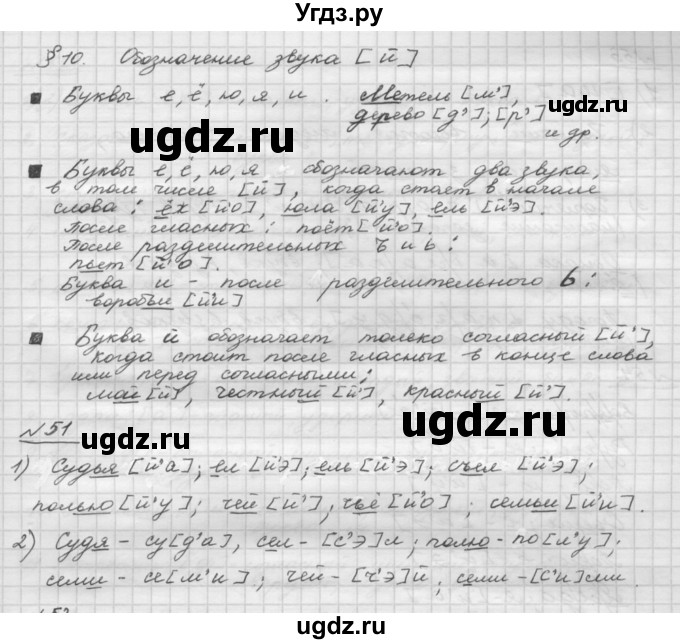 Угдз.ру
§ 10. Обозначение звука [й]
Буквы е, ё, ю, я, и. Метель [м'],
дерево [д']; [р']
и др.
ugdz.ru
ugdz.ru
Буквы е, ё, ю, я обозначают два звука,
в том числе [й], когда стает в начале
слова: ёх [й'о], юла [й'у], ель [й'э].
После гласных: поёт [й'о].
После разделительных ъ и ь:
пьет [й'о].
Буква и - после разделительного ь:
воробьи [й'и]
ugdz.ru
Буква й обозначает только согласный [й'],
когда стоит после гласных в конце слова
или перед согласными:
мой [й'], честный [й'], красный [й'].
ugdz.ru
ugdz.ru
№51
1) Судья [й'а]; ел [й'э]; ель [й'э]; съел [й'э];
полью [й'у]; чей [й']; чьё [й'о]; семьи [й'и].
2) Судя - су[д'а], сел - [с'э]л; полю - по[л'у];
семи - се[м'и]; чей - [ч'э]й; семи - [с'и]ми
ugdz.ru
ugdz.ru